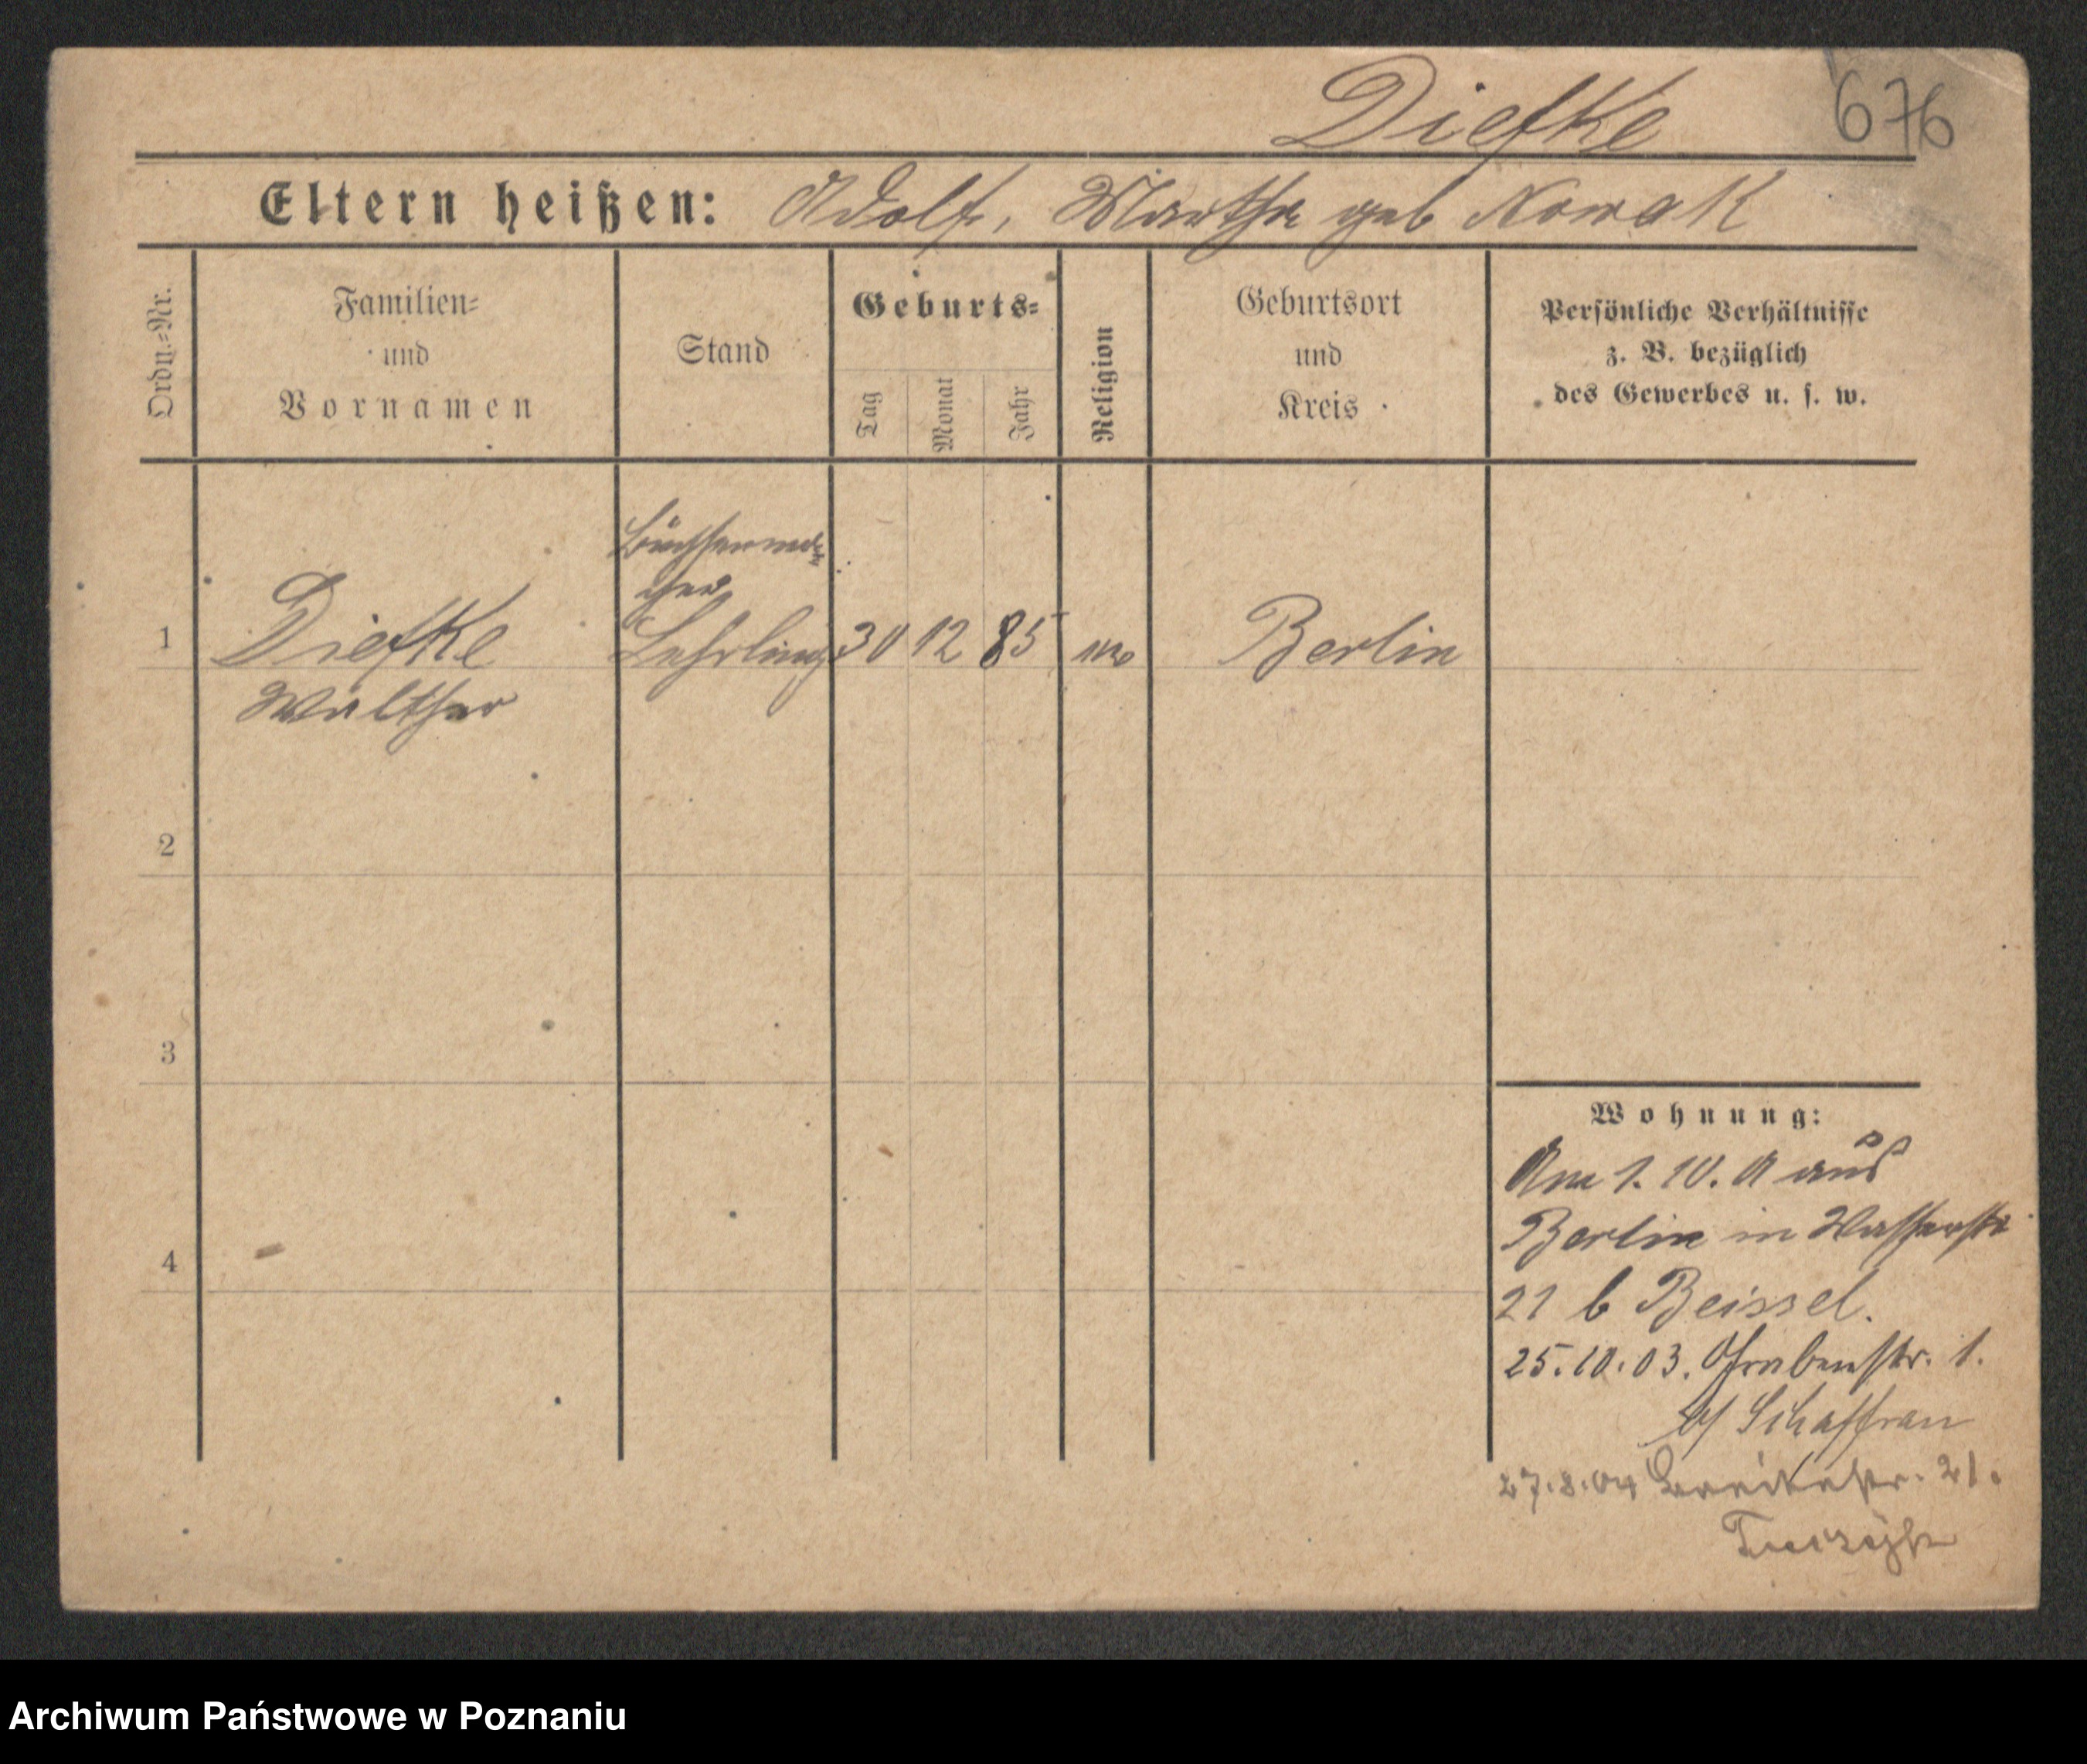 Diefke 676
Eltern heißen: Adolf, Martha geb Nowak
Ordn.-Nr.
Familien-
und
Vornamen
Stand
Geburts-
Tag
Monat
Jahr
Religion
Geburtsort
und
Kreis
Persönliche Verhältnisse
z. B. bezüglich
des Gewerbes u. s. w.
Büchsenma-
cher
1 Diefke Lehrling 30 12 85 Berlin
Walther
2
3
4
Wohnung:
Am 1. 10. aus
Berlin in Wasserstr
21 b Beissel.
25.10.03. Grabenstr. 1.
b/ Schaffran
27.8.04 Breitestr. 21.
Archiwum Państwowe w Poznaniu